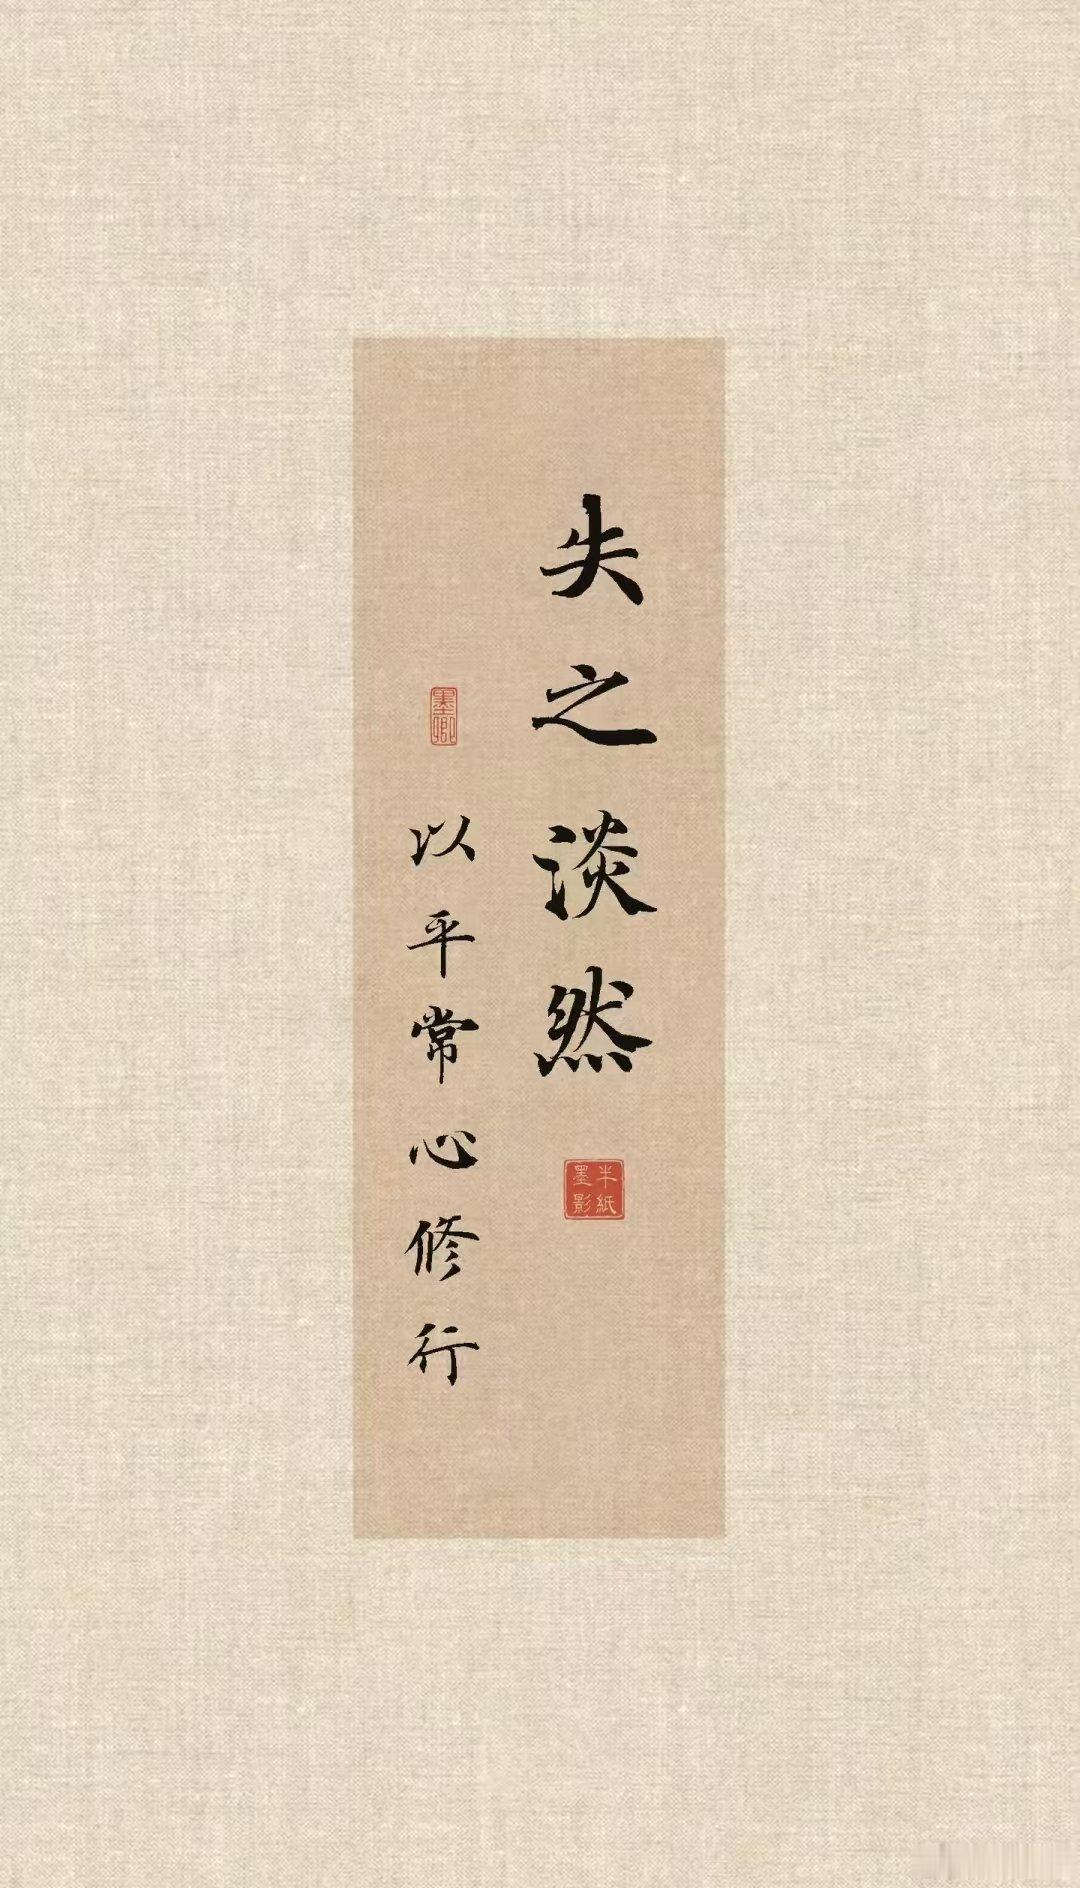 失之淡然
半紙
墨影
墨卿
以平常心修行